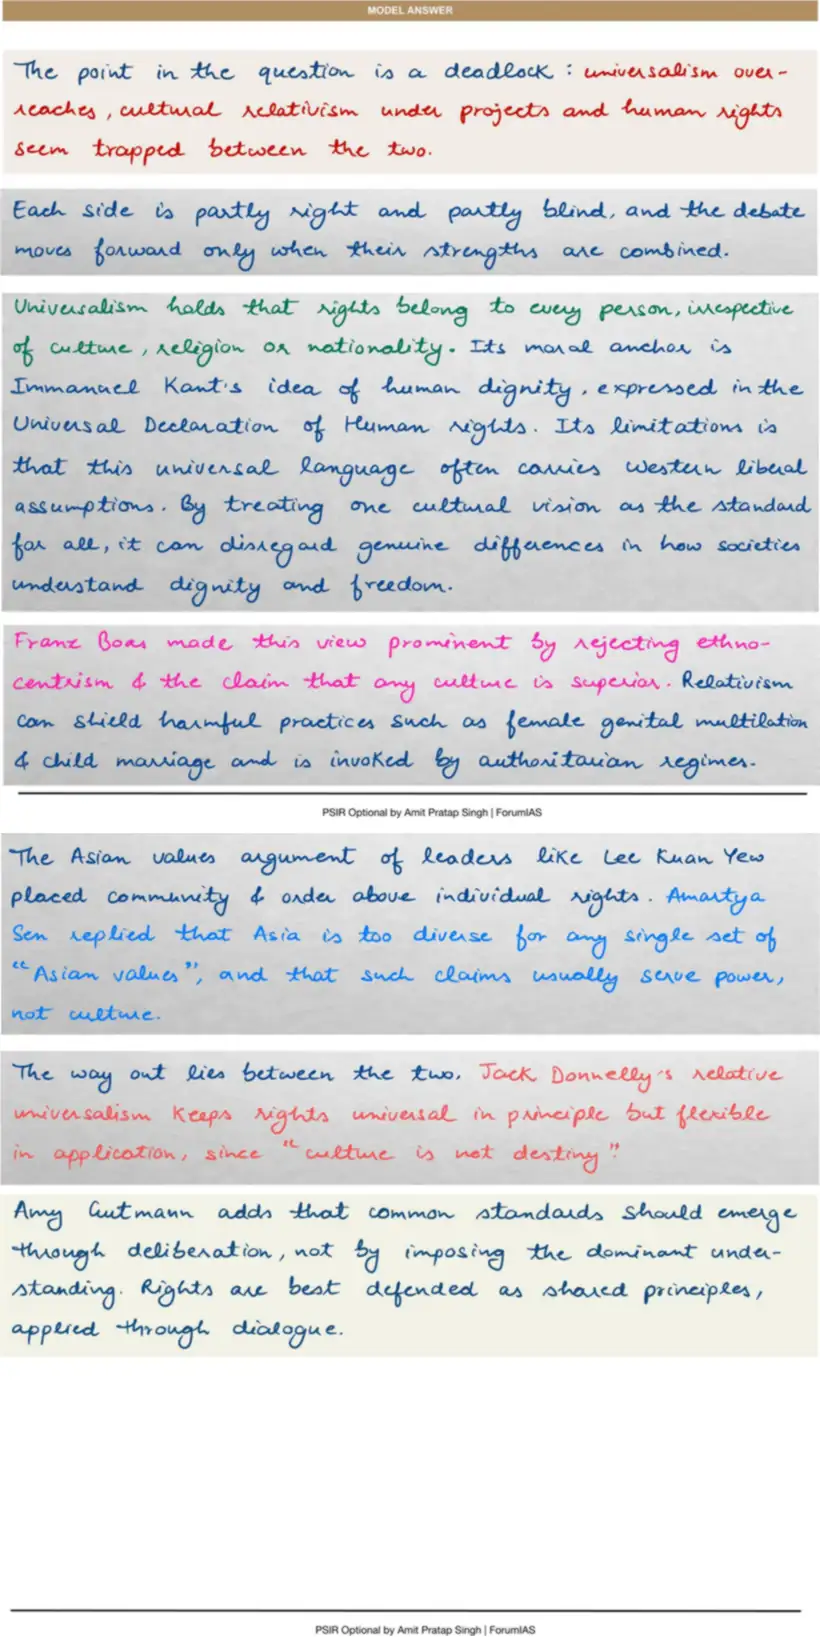 MODEL ANSWER
The point in the question is a deadlock : universalism over-
reaches, cultural relativism under projects and human rights
seem trapped between the two.
Each side is partly right and partly blind, and the debate
moves forward only when their strengths are combined.
Universalism holds that rights belong to every person, irrespective
of culture, religion or nationality. Its moral anchor is
Immanuel Kant's idea of human dignity, expressed in the
Universal Declaration of Human rights. Its limitations is
that this universal language often carries western liberal
assumptions. By treating one cultural vision as the standard
for all, it can disregard genuine differences in how societies
understand dignity and freedom.
Franz Boas made this view prominent by rejecting ethno-
centrism & the claim that any culture is superior. Relativism
can shield harmful practices such as female genital multilation
& child marriage and is invoked by authoritarian regimes.
PSIR Optional by Amit Pratap Singh | ForumIAS
The Asian values argument of leaders like Lee Kuan Yew
placed community & order above individual rights. Amartya
Sen replied that Asia is too diverse for any single set of
"Asian values", and that such claims usually serve power,
not culture.
The way out lies between the two. Jack Donnelly's relative
universalism keeps rights universal in principle but flexible
in application, since "culture is not destiny".
Amy Gutmann adds that common standards should emerge
through deliberation, not by imposing the dominant under-
standing. Rights are best defended as shared principles,
applied through dialogue.
PSIR Optional by Amit Pratap Singh | ForumIAS